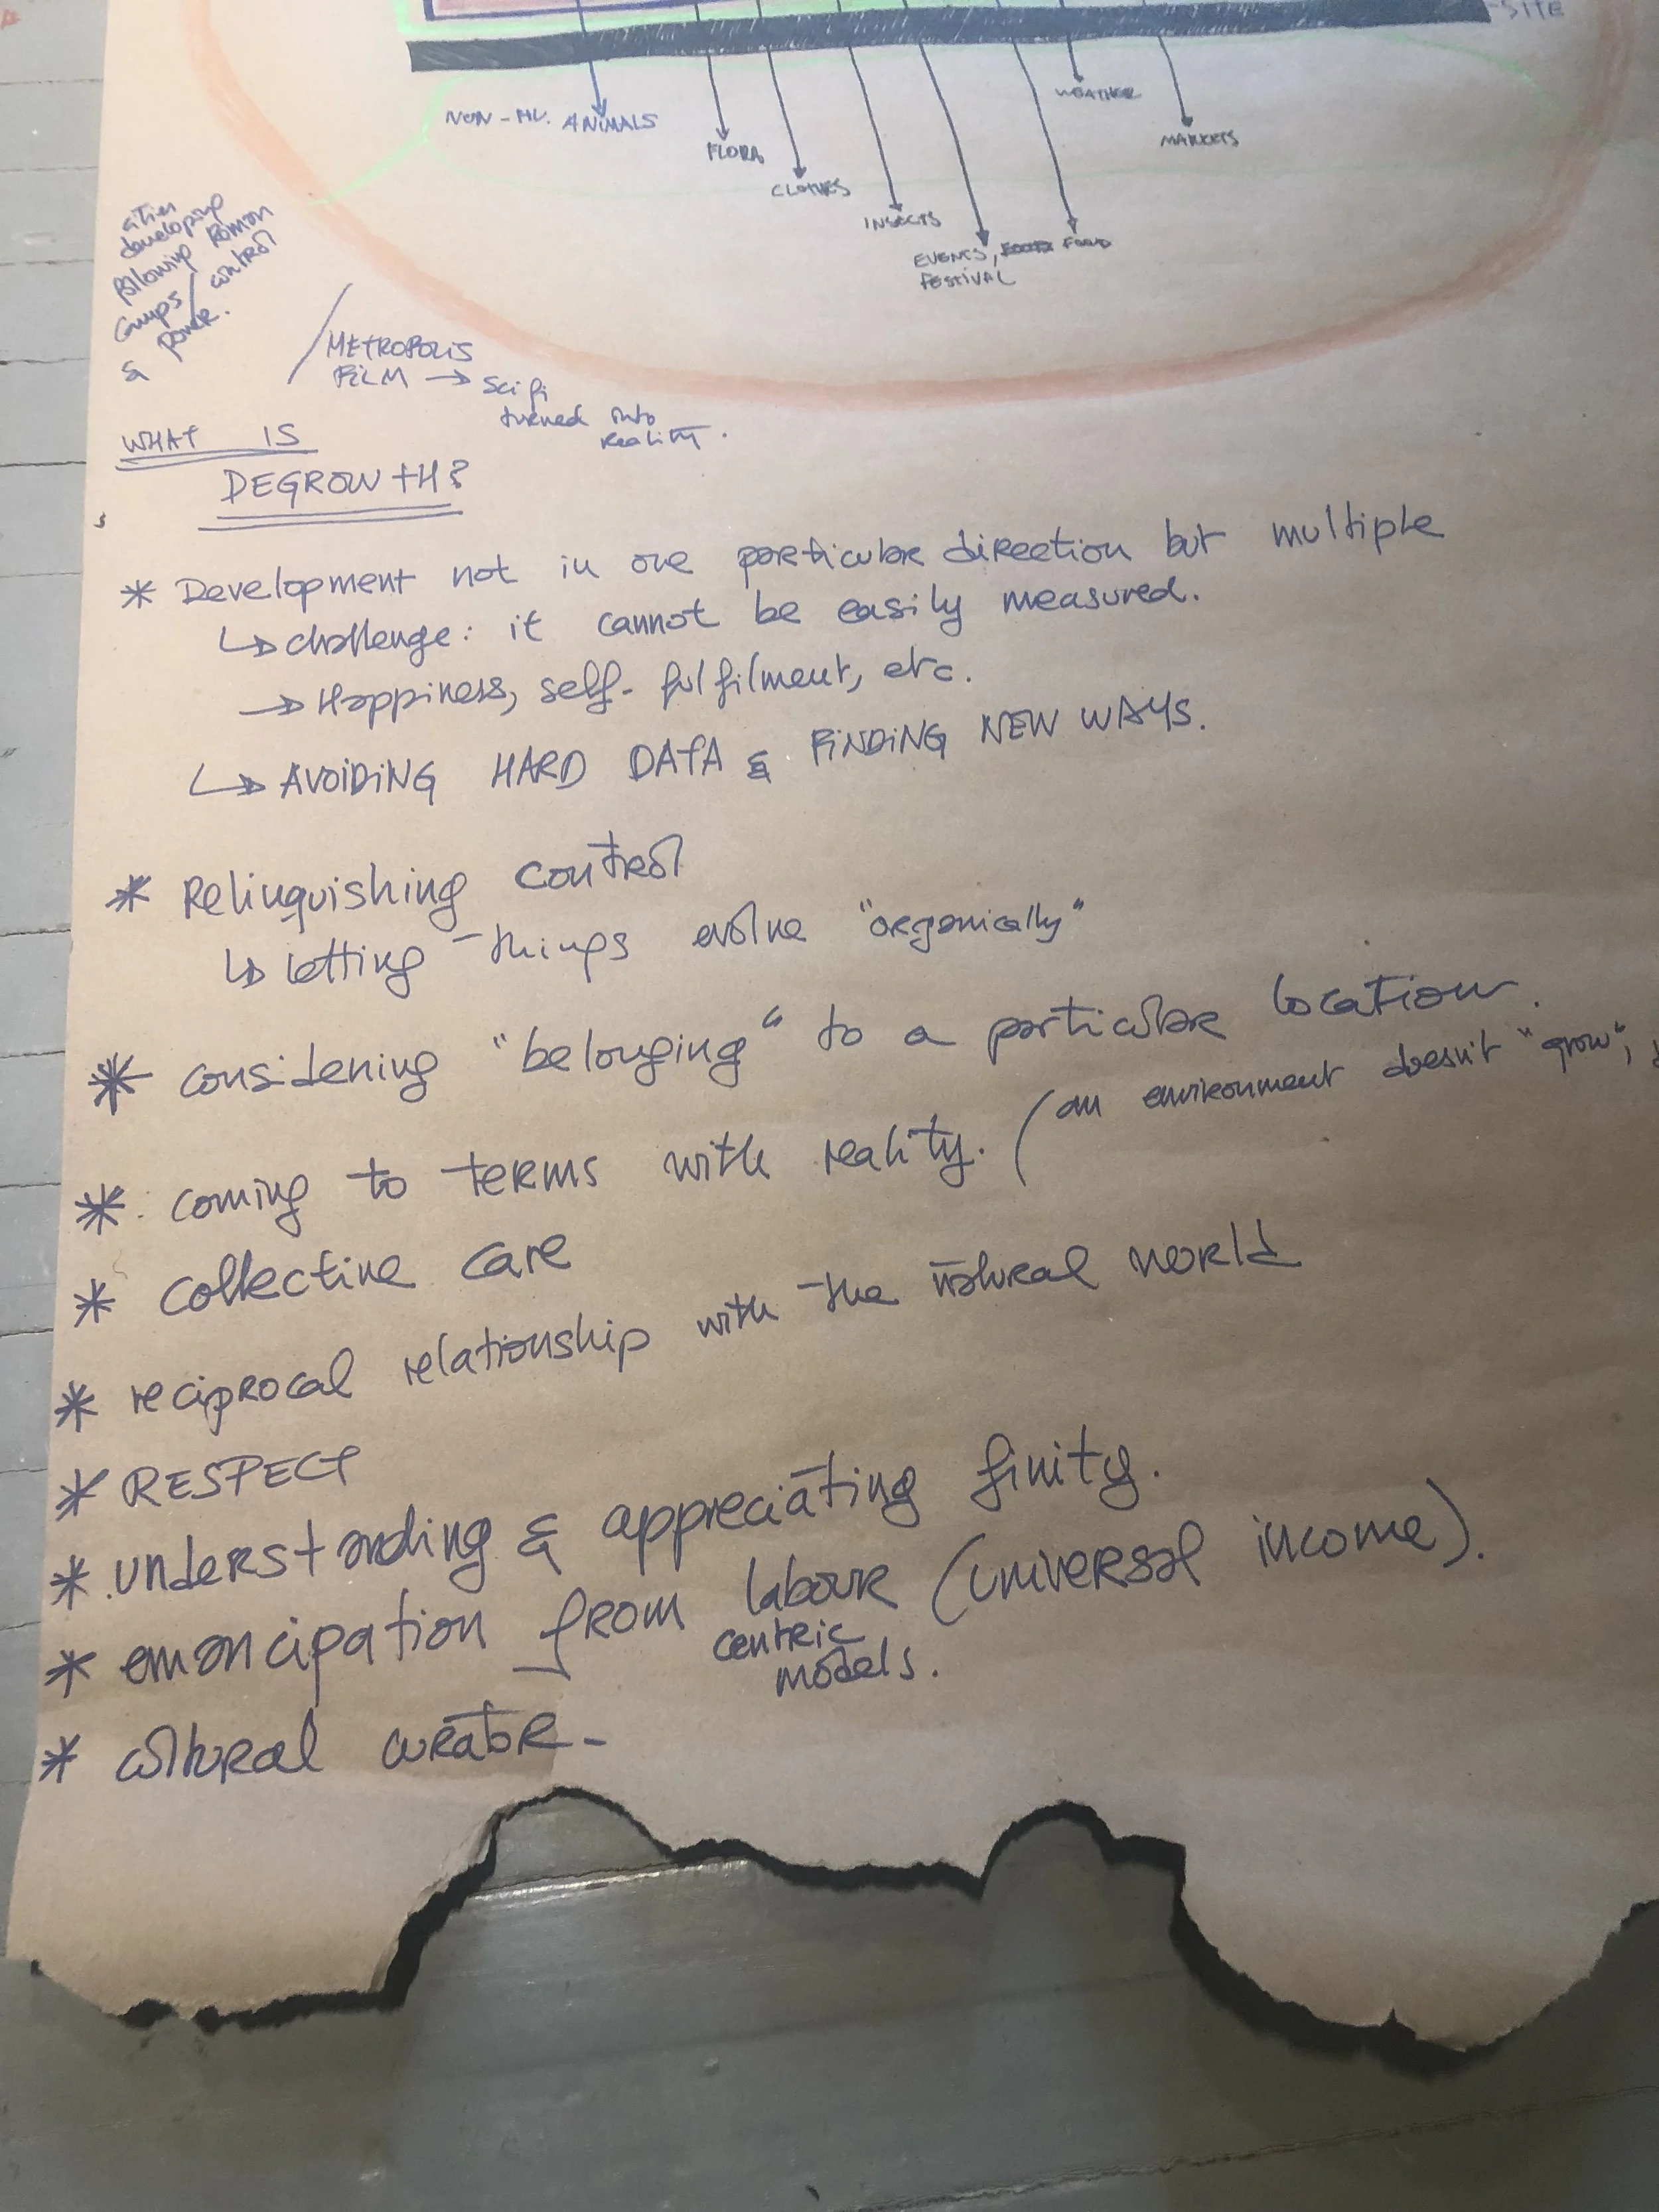 SITE
WEATHER
NON-HU. ANIMALS
MARKETS
FLORA
CLOTHES
INSECTS
EVENTS, FOOD
FESTIVAL
cities
developing
following Roman
Camps / control
& power.
METROPOLIS
FILM → Sci fi
turned into
reality.
WHAT IS
DEGROWTH?
* Development not in one particular direction but multiple
↳ challenge: it cannot be easily measured.
→ Happiness, self-fulfilment, etc.
↳ AVOIDING HARD DATA & FINDING NEW WAYS.
* Relinquishing control
↳ letting things evolve "organically"
* considering "belonging" to a particular location.
* coming to terms with reality. (an environment doesn't "grow",
* collective care
* reciprocal relationship with the natural world
* RESPECT
* understanding & appreciating finity.
* emancipation from labour (universal income).
centric
models.
* cultural curator-